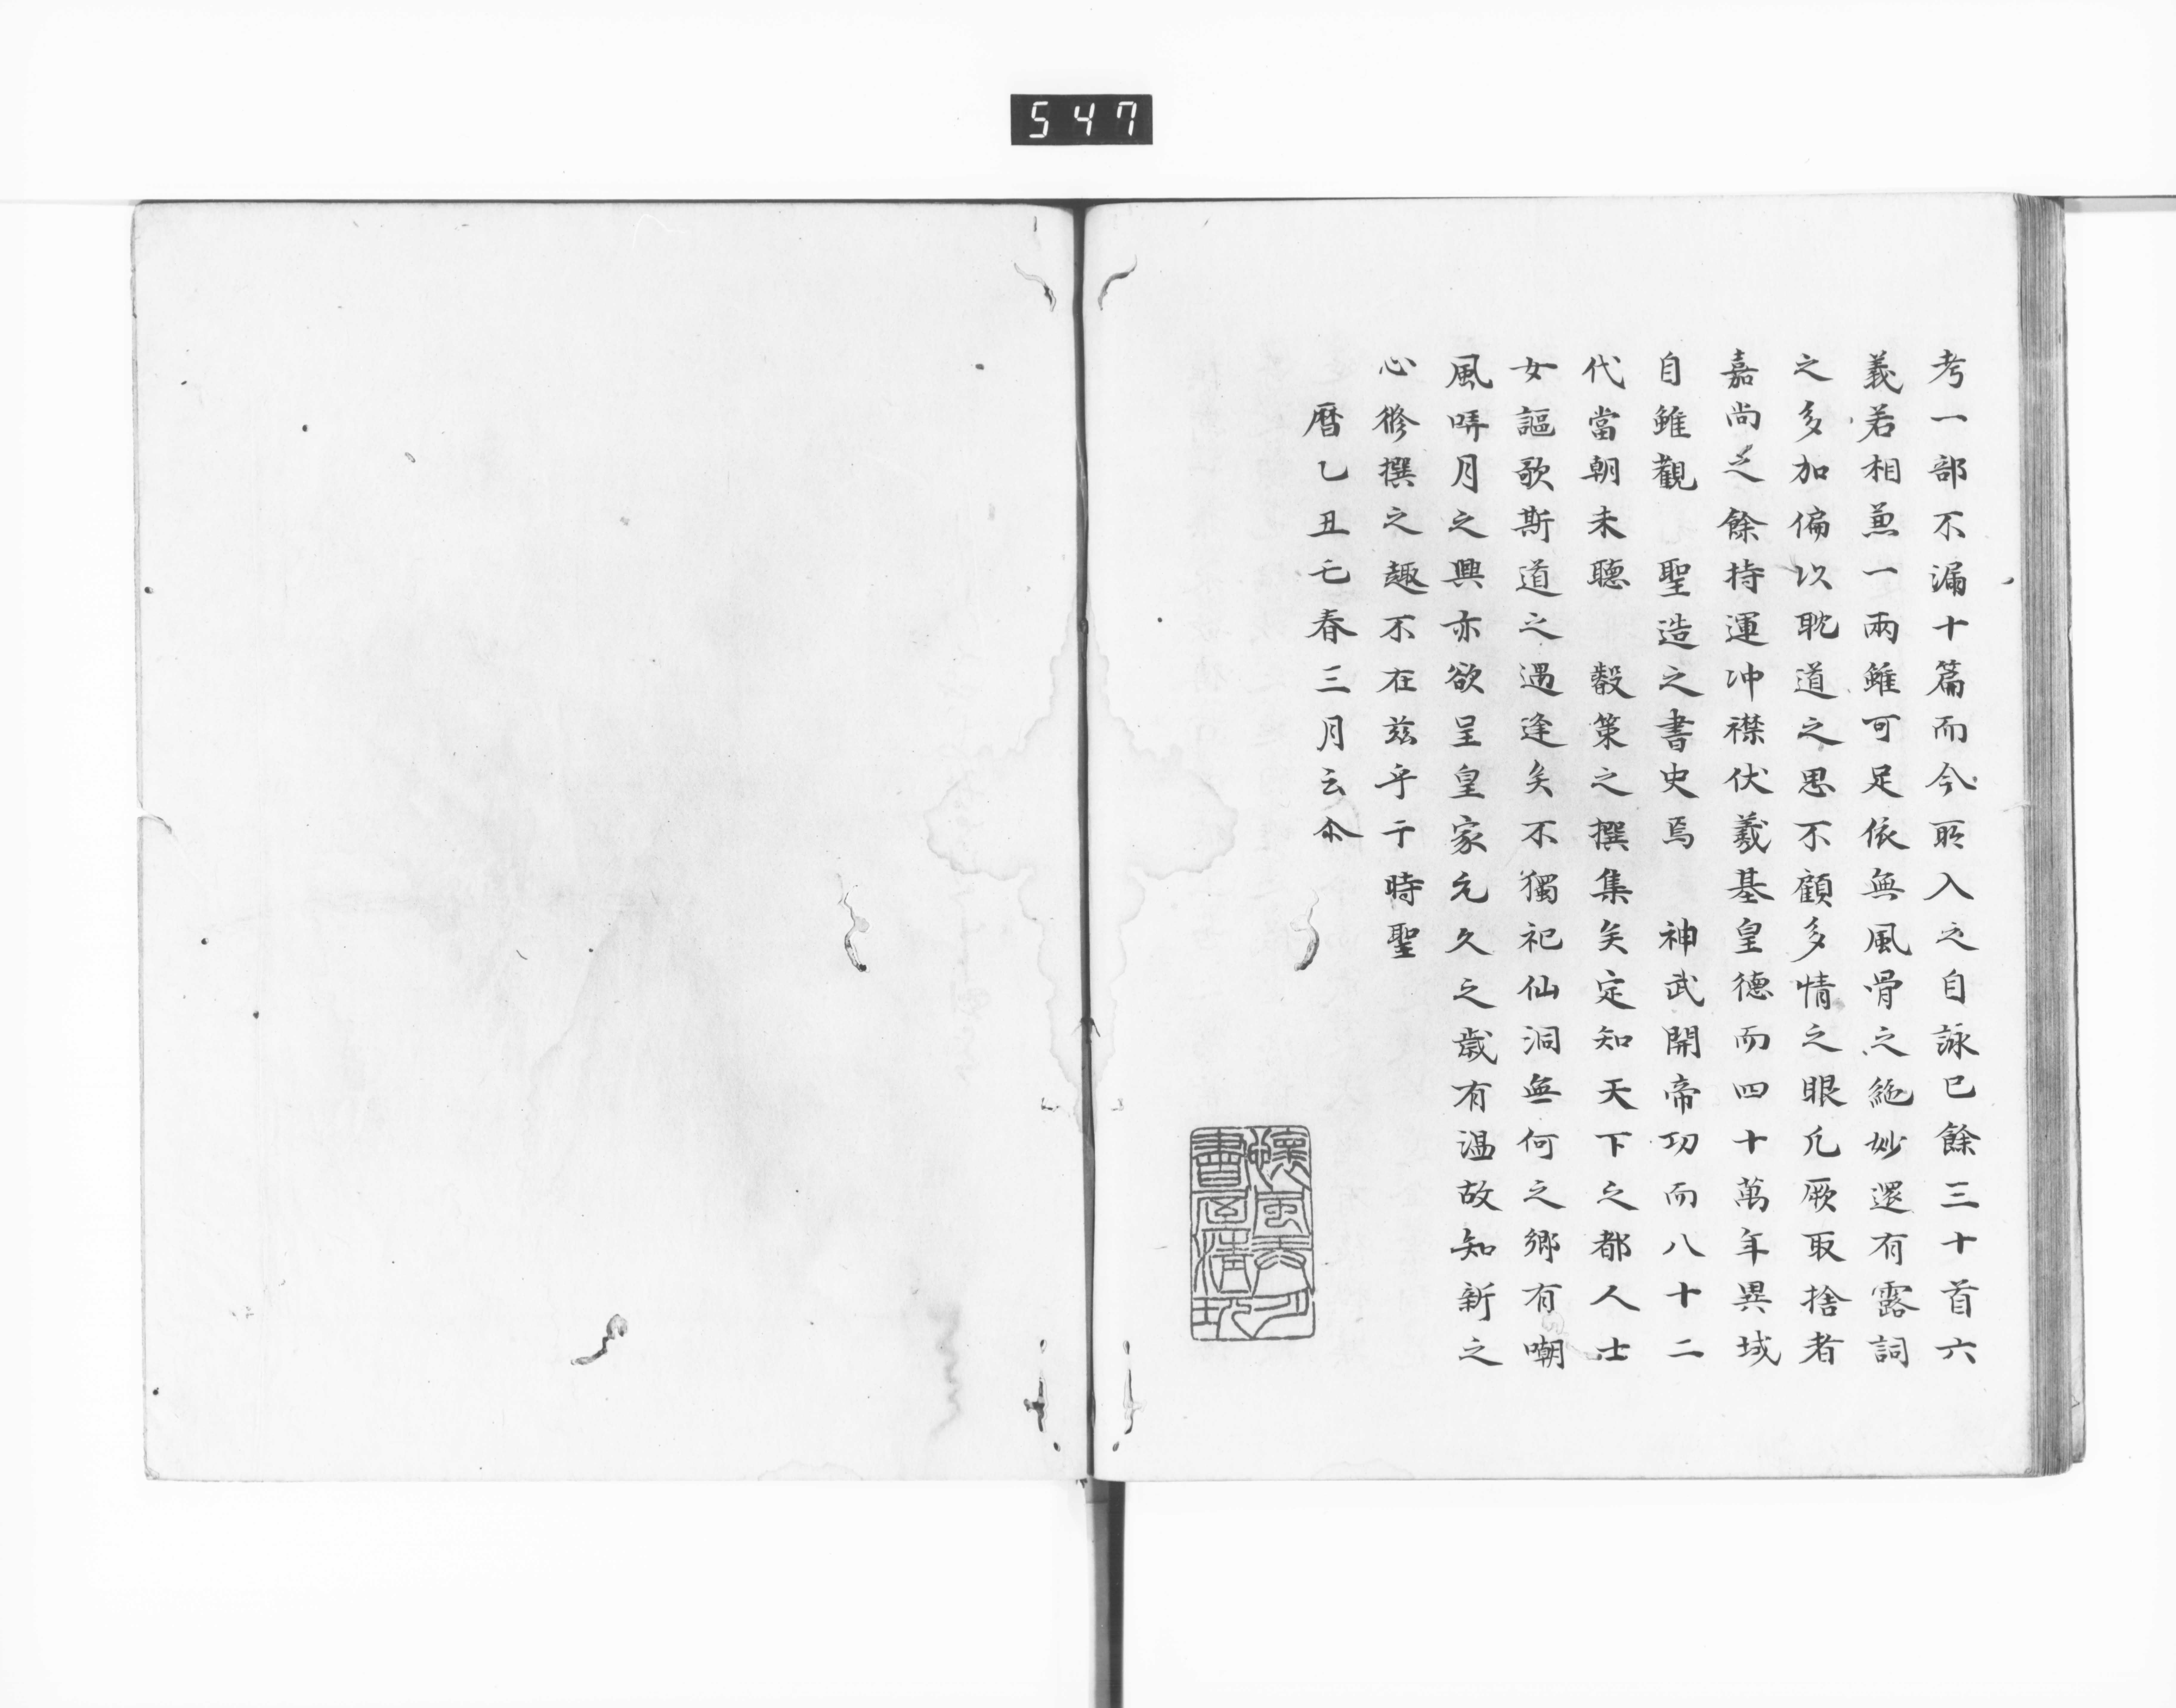 547
考一部不漏十篇而今所入之自詠已餘三十首六
義若相兼一兩雖可足依無風骨之絶妙還有露詞
之多加偏以耽道之思不顧多情之眼凡厥取捨者
嘉尚之餘持運冲襟伏羲基皇德而四十萬年異域
自雖觀 聖造之書史焉 神武開帝功而八十二
代當朝未聽 叡策之撰集矣定知天下之都人士
女謳歌斯道之遇逢矣不獨祀仙洞無何之鄉有嘲
風哢月之興亦欲呈皇家元久之歲有温故知新之
心修撰之趣不在茲乎于時聖
暦乙丑王春三月云尒